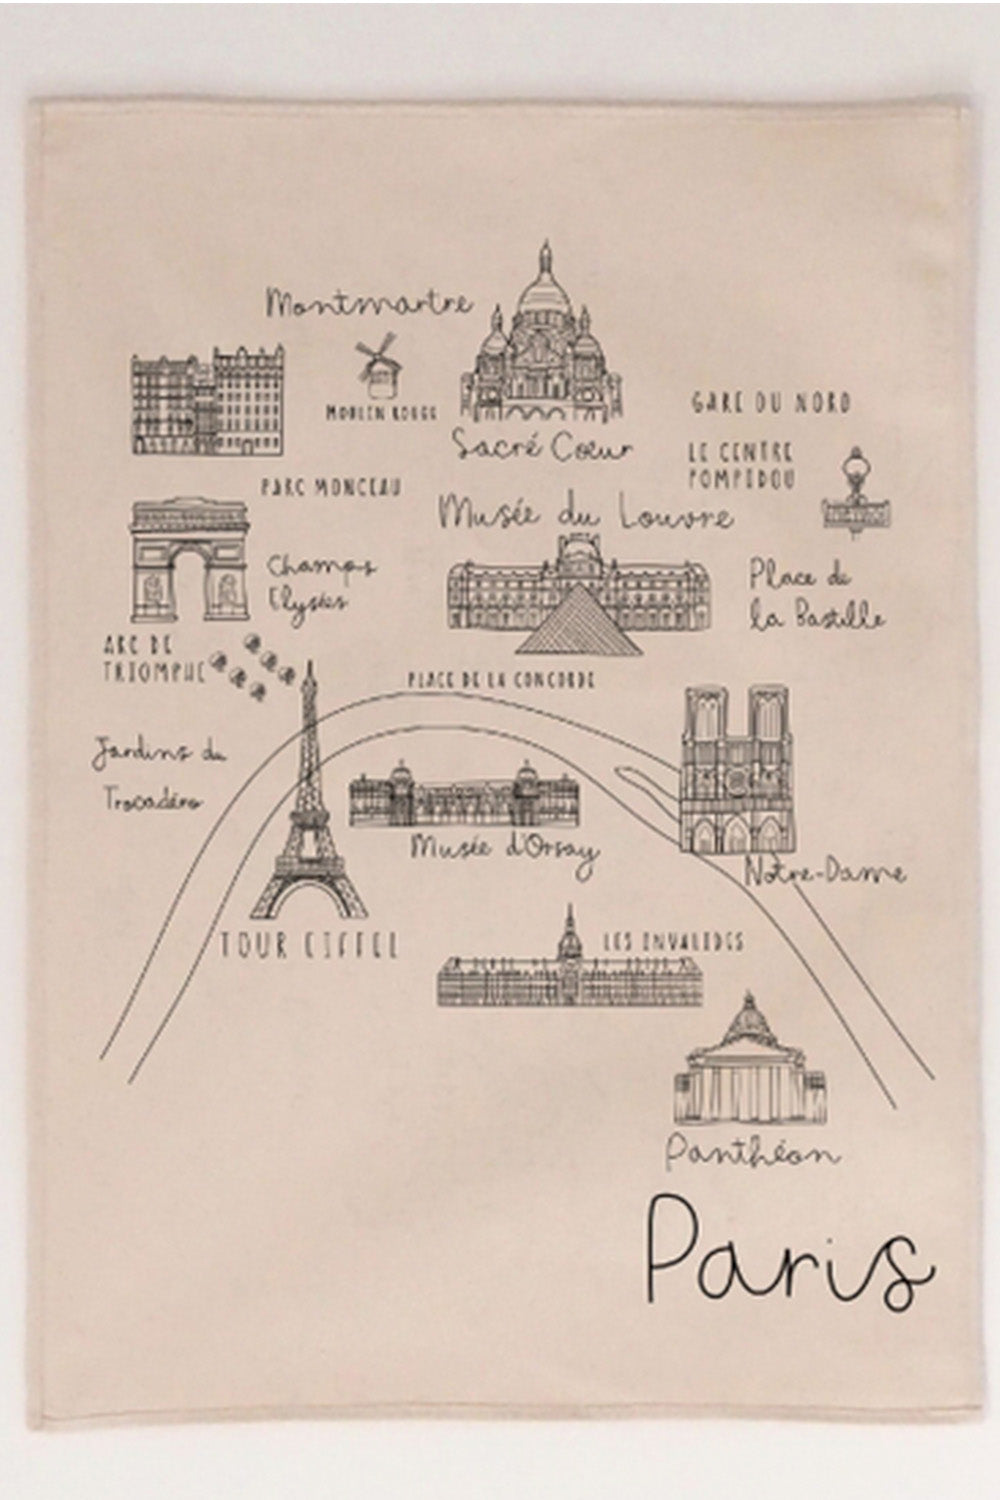 Montmartre
MOULIN ROUGE
Sacré Cœur
GARE DU NORD
LE CENTRE
POMPIDOU
PARC MONCEAU
Musée du Louvre
Champs
Elysées
Place de
la Bastille
ARC DE
TRIOMPHE
PLACE DE LA CONCORDE
Jardins du
Trocadéro
Musée d'Orsay
Notre-Dame
TOUR EIFFEL
LES INVALIDES
Panthéon
Paris